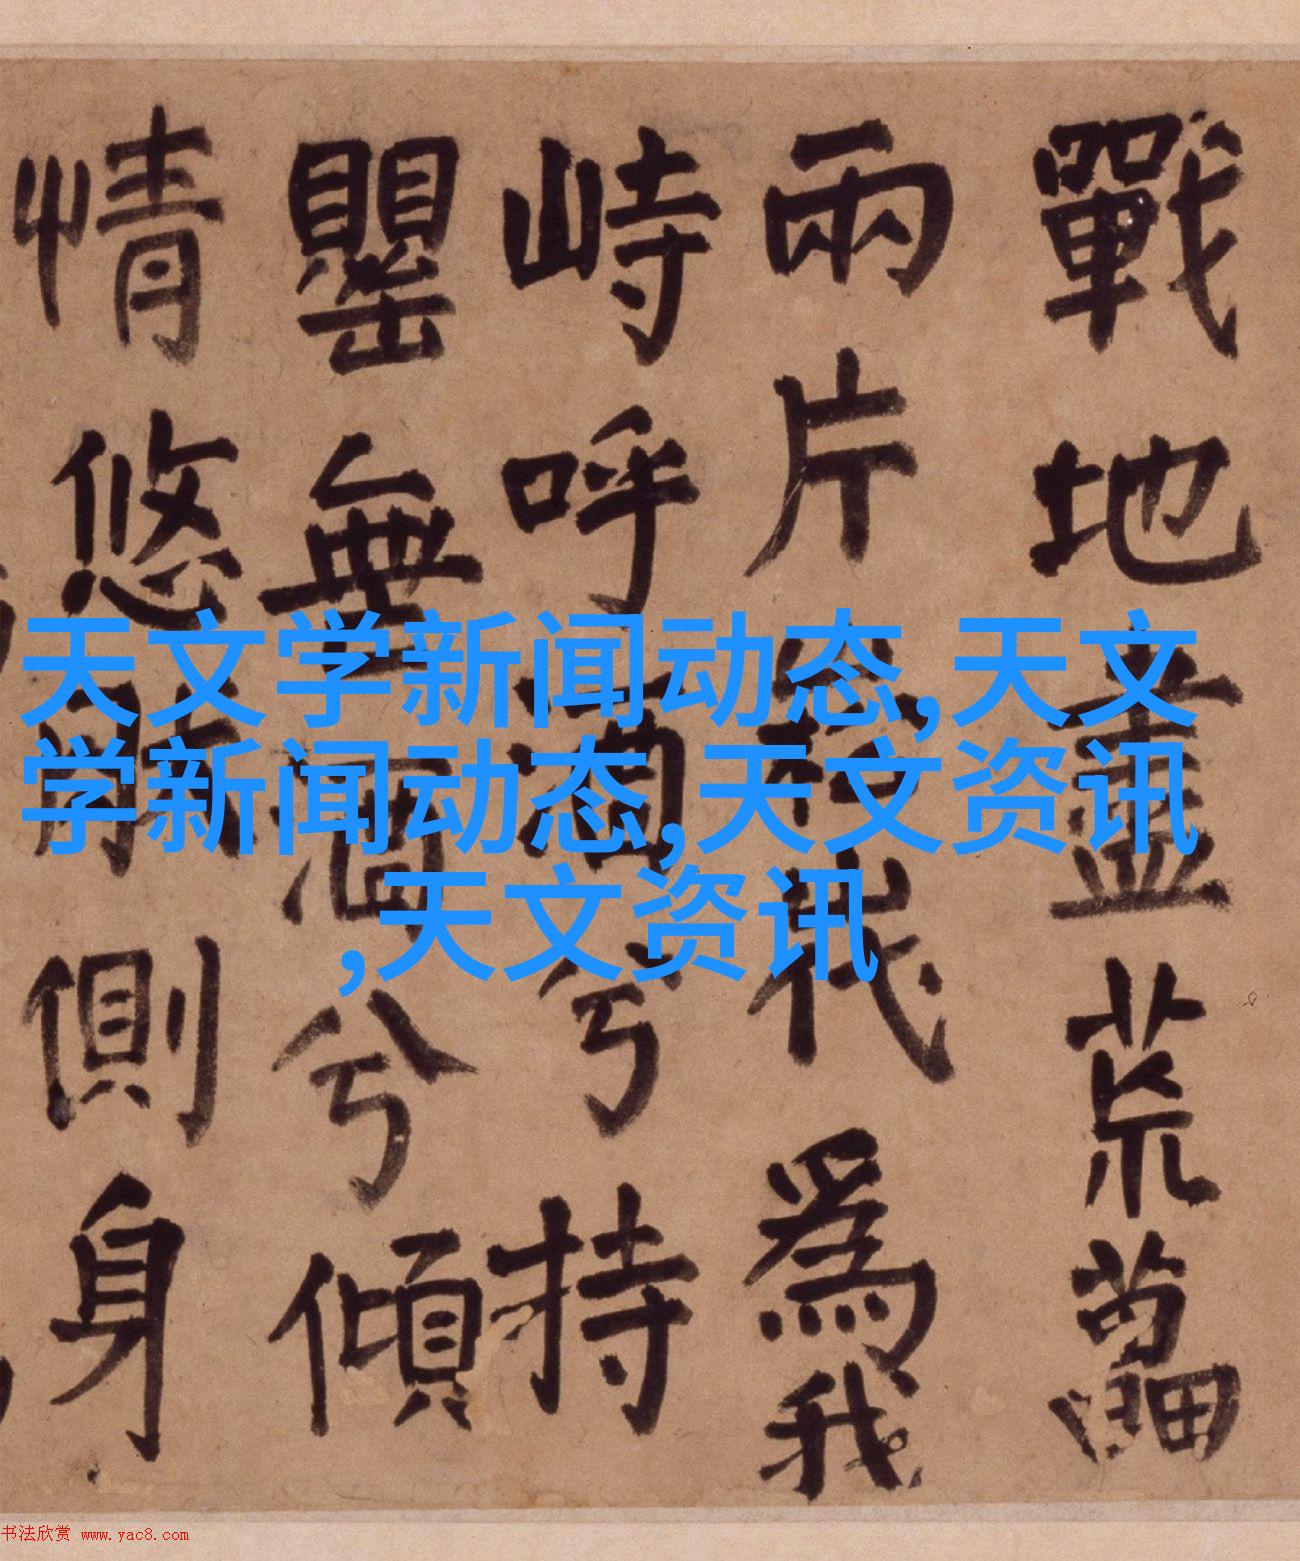 戰地盡荒
兩片代為我
峙呼兮持
罌無兮傾
情悠側身
天文学新闻动态,天文
学新闻动态,天文资讯
,天文资讯
书法欣赏 www.yac8.com